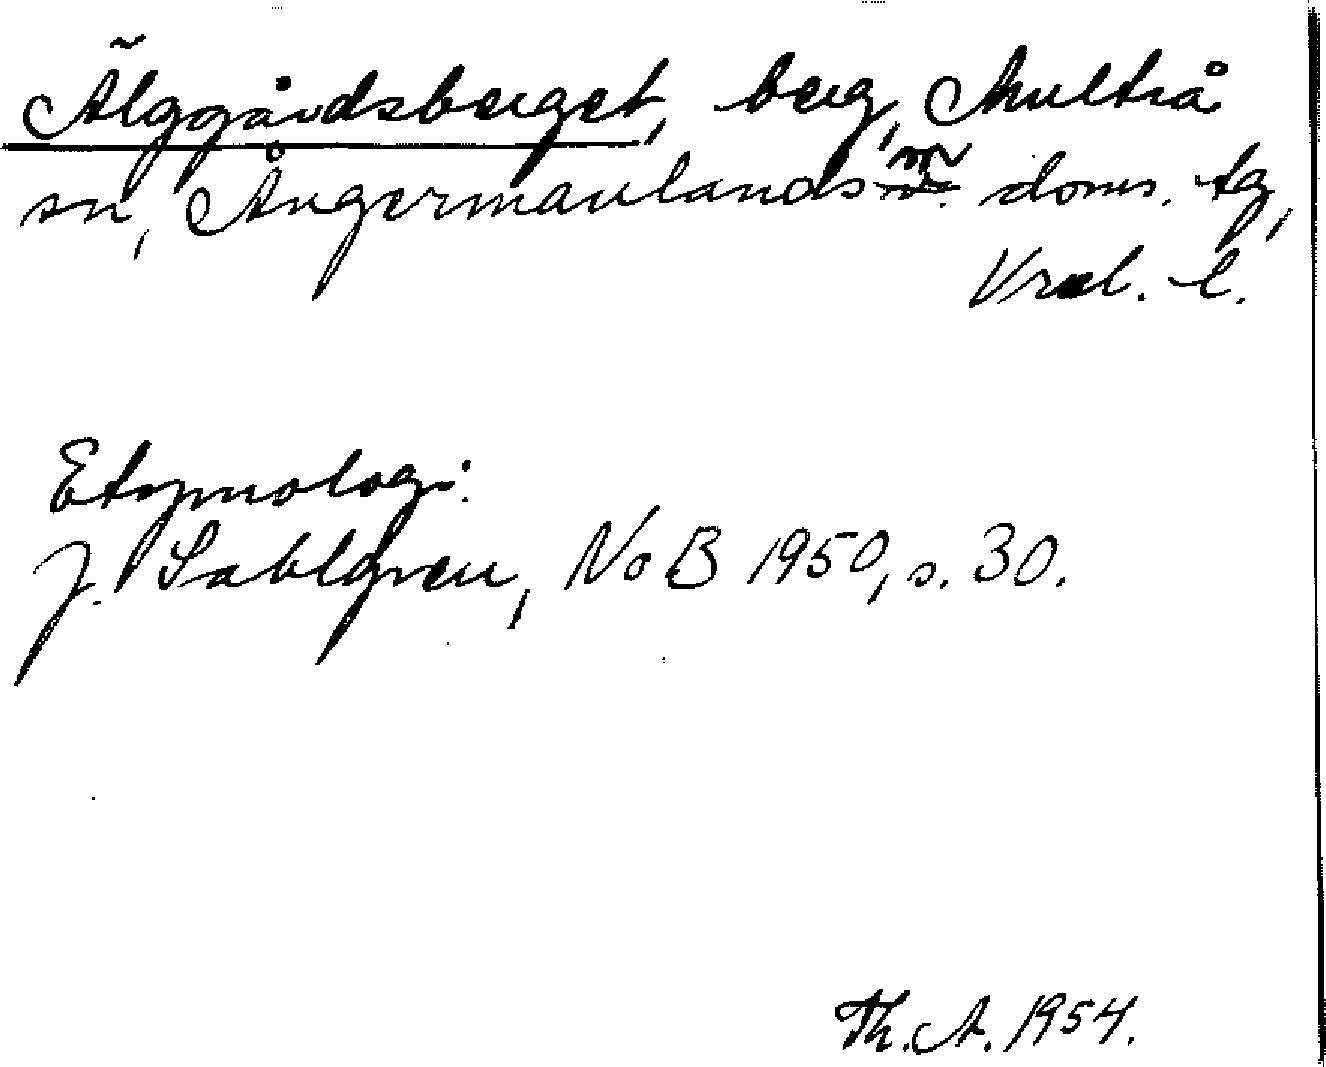 Älggårdsberget, berg, Multrå
sn, Ångermanlands m. doms. tg,
Vrnl. l.
Etymologi:
J. Sahlgren, NoB 1950, s. 30.
Th. A. 1954.